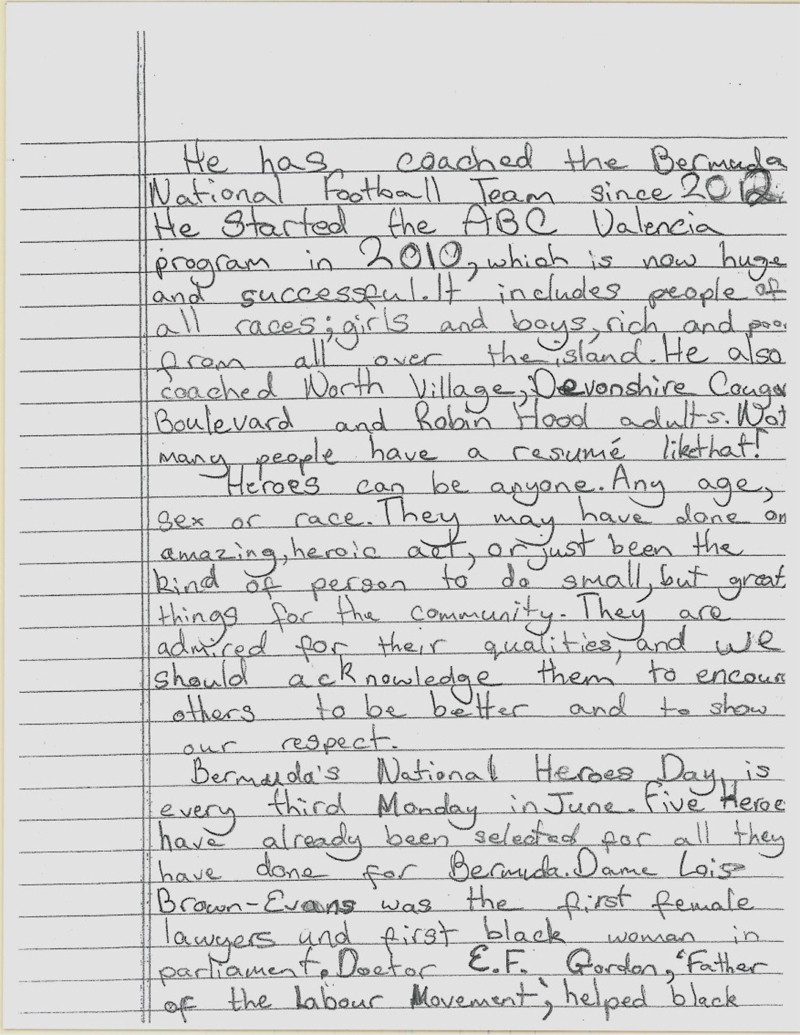 He has coached the Bermuda
National Football Team since 2012.
He Started the ABC Valencia
program in 2010, which is now huge
and successful. It includes people of
all races; girls and boys, rich and poor
from all over the island. He also
coached North Village, Devonshire Couga
Boulevard and Robin Hood adults. Not
many people have a resumé like that!
Heroes can be anyone. Any age,
sex or race. They may have done an
amazing, heroic act, or just been the
kind of person to do small, but great
things for the community. They are
admired for their qualities, and we
should acknowledge them to encour
others to be better and to show
our respect.
Bermuda's National Heroes Day, is
every third Monday in June. Five Heroe
have already been selected for all they
have done for Bermuda. Dame Lois
Brown-Evans was the first female
lawyers and first black woman in
parliament. Doctor E.F. Gordon, 'Father
of the Labour Movement', helped black